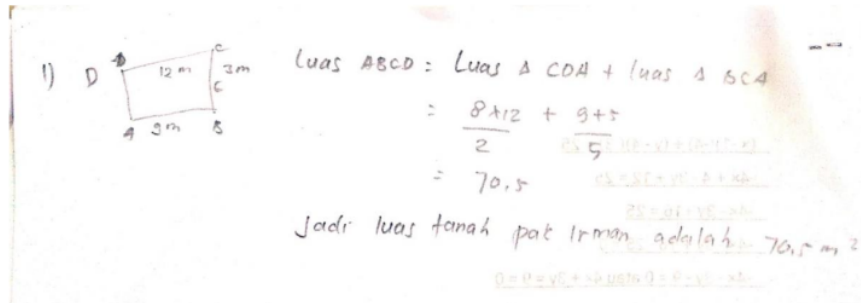 1) D
C
12 m
3m
A 9m B
Luas ABCD = Luas Δ CDA + luas Δ BCA
= 8x12 + 9+5
2 5
= 70,5
Jadi luas tanah pak Irman adalah 70,5 m²